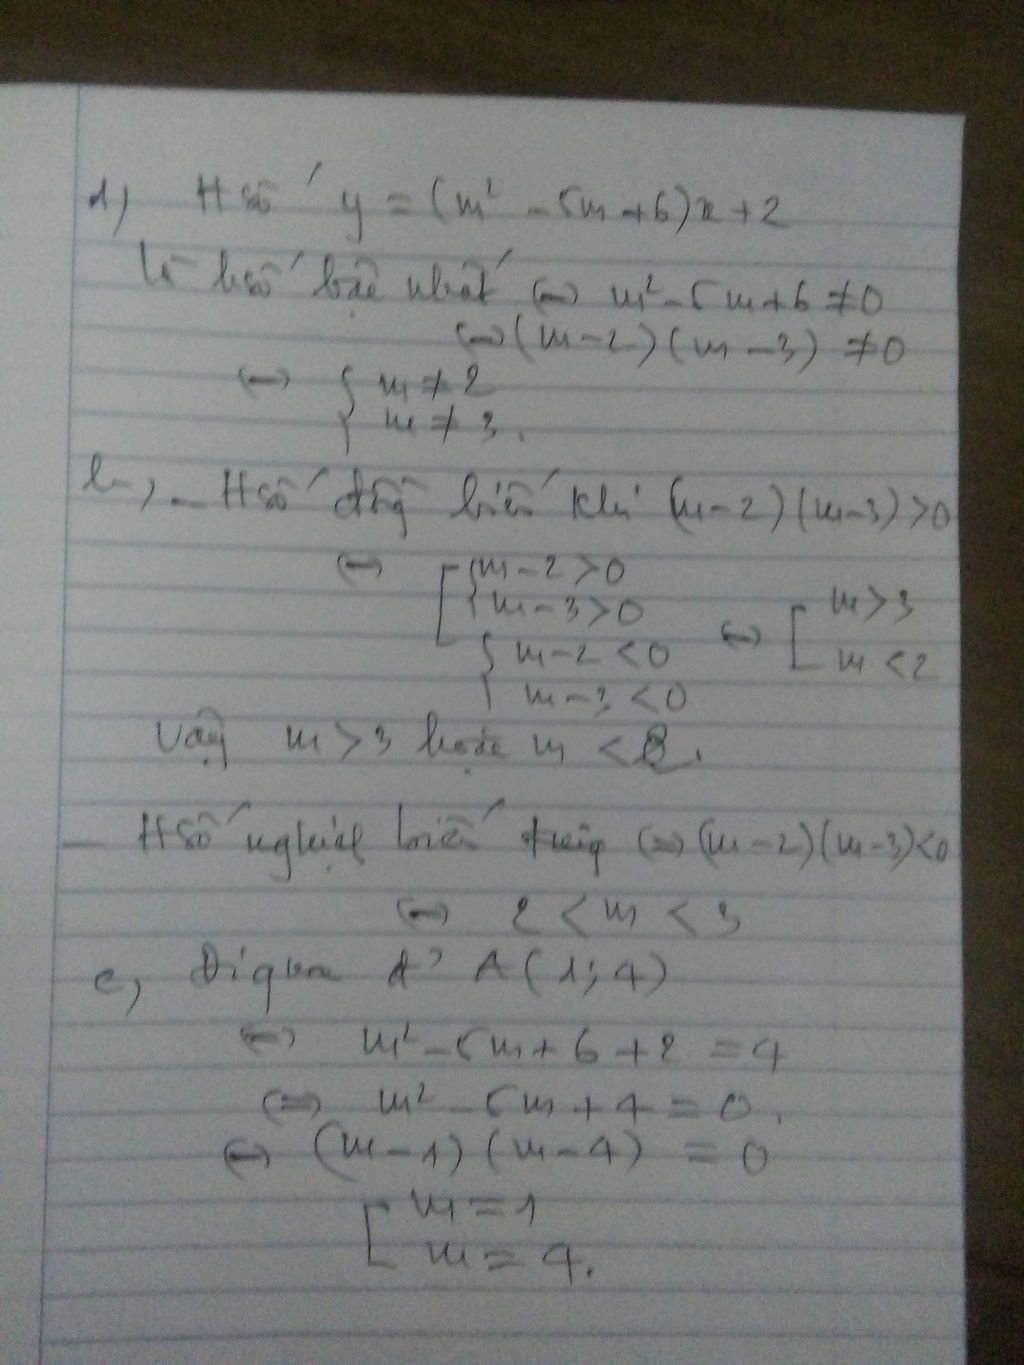 a) Hsố y = (m² - 5m + 6)x + 2
là hsố bậc nhất <=> m² - 5m + 6 ≠ 0
<=> (m - 2)(m - 3) ≠ 0
<=> { m ≠ 2
m ≠ 3.
b, - Hsố đồng biến khi (m - 2)(m - 3) > 0
<=> [ { m - 2 > 0
m - 3 > 0
{ m - 2 < 0
m - 3 < 0
<=> [ m > 3
m < 2
Vậy m > 3 hoặc m < 2.
- Hsố nghịch biến <=> (m - 2)(m - 3) < 0
<=> 2 < m < 3
c, Đi qua đ' A(1; 4)
<=> m² - 5m + 6 + 2 = 4
<=> m² - 5m + 4 = 0.
<=> (m - 1)(m - 4) = 0
[ m = 1
m = 4.